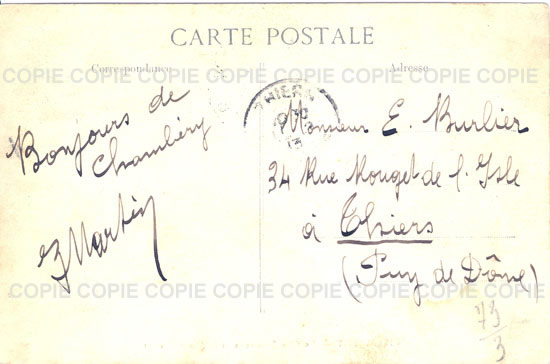 CARTE POSTALE
Correspondance
Adresse
COPIE COPIE COPIE COPIE COPIE COPIE COPIE COPIE
THIERS
Bonjours de
Chambéry
Martin
Monsieur E. Burlier
34 Rue Rouget de l'Isle
à Thiers
(Puy de Dôme)
COPIE COPIE COPIE COPIE COPIE COPIE COPIE COPIE
73
3